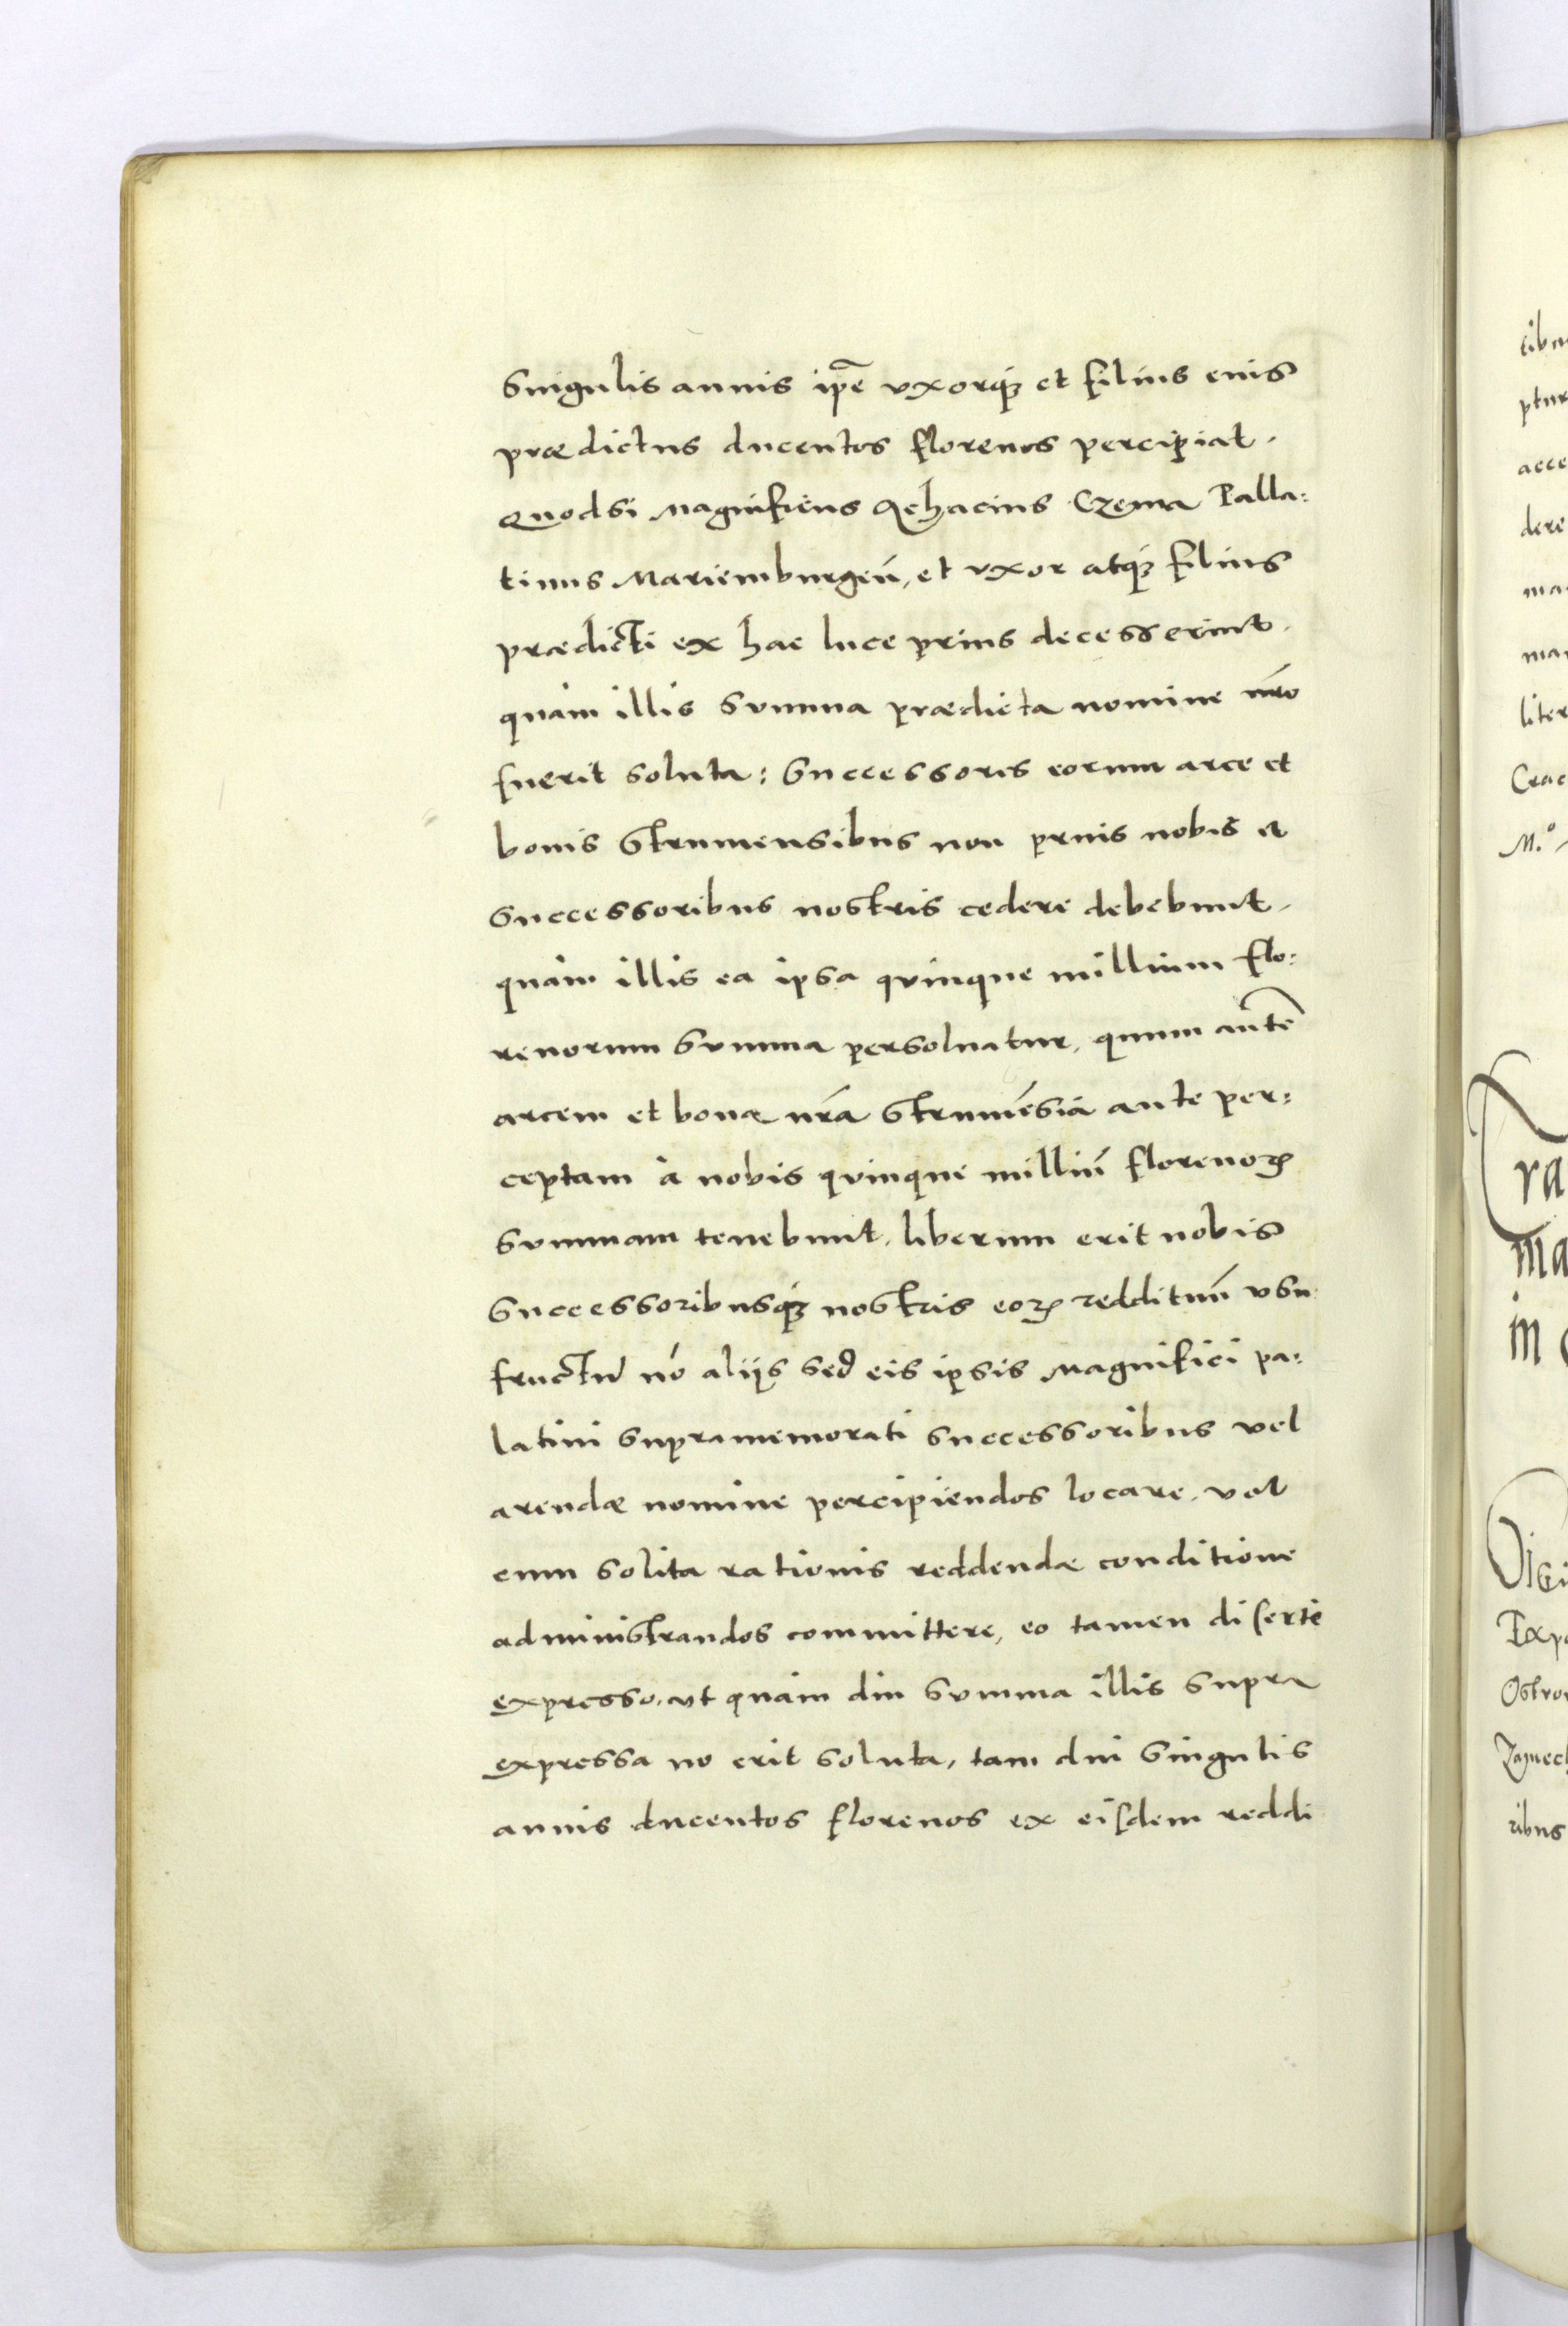 singulis annis ip̄e vxorq́ꝫ et filius eius
prædictus ducentos florenos percipiat.
Quodsi Magnificus Achacius Czema Palla:
tinus Mariemburgeñ, et vxor atq́ꝫ filius
prædicti ex hac luce prius decesserint.
quàm illis summa prædicta nomine nr̄o
fuerit soluta: successores eorum arce et
bonis Strumensibus non prius nobis et
successoribus nostris cedere debebunt.
quàm illis ea ipsa quinque millium flo:
renorum summa persoluatur. quum aūtē
arcem et bona nr̄a Strumēsia ante per:
ceptam à nobis quinque milliū florenoꝝ
summam tenebunt, liberum erit nobis
successoribusq́ꝫ nostris eoꝝ reddituū vsu
fructū nō aliįs sed eis ipsis Magnifici pa:
latini supramemorati successoribus vel
arendæ nomine percipiendos locare, vel
cum solita rationis reddendæ conditione
administrandos committere, eo tamen diserte
expresso, vt quàm diu summa illis supra
expressa nō erit soluta, tam diu singulis
annis ducentos florenos ex eisdem reddi
tibu
ptur
acce
dere
ma
man
liter
Crac
M.°
ra
ma
in
Expo
Ostro
ribus